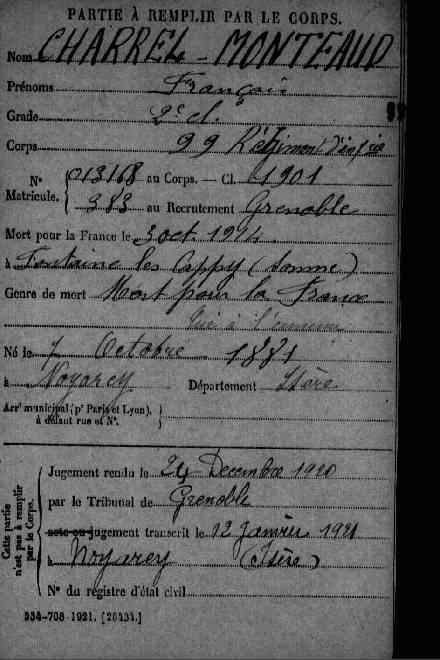 PARTIE À REMPLIR PAR LE CORPS.
Nom CHARREL - MONTEAUD
Prénoms François
Grade 2e cl.
Corps 99 Régiment d'infie
No Matricule. 013168 au Corps. — Cl. 1901
383 au Recrutement Grenoble
Mort pour la France le 3 oct. 1914
à Fontaine les Cappy (Somme)
Genre de mort Mort pour la France
Tué à l'ennemi
Né le 7 Octobre 1881
à Noyarey Département Isère
Arrt municipal (pr Paris et Lyon), à défaut rue et No.
Cette partie n'est pas à remplir par le Corps.
Jugement rendu le 24 Decembre 1920
par le Tribunal de Grenoble
acte ou jugement transcrit le 12 Janvier 1921
à Noyarey (Isère)
No du registre d'état civil
534-708-1921. [26434.]